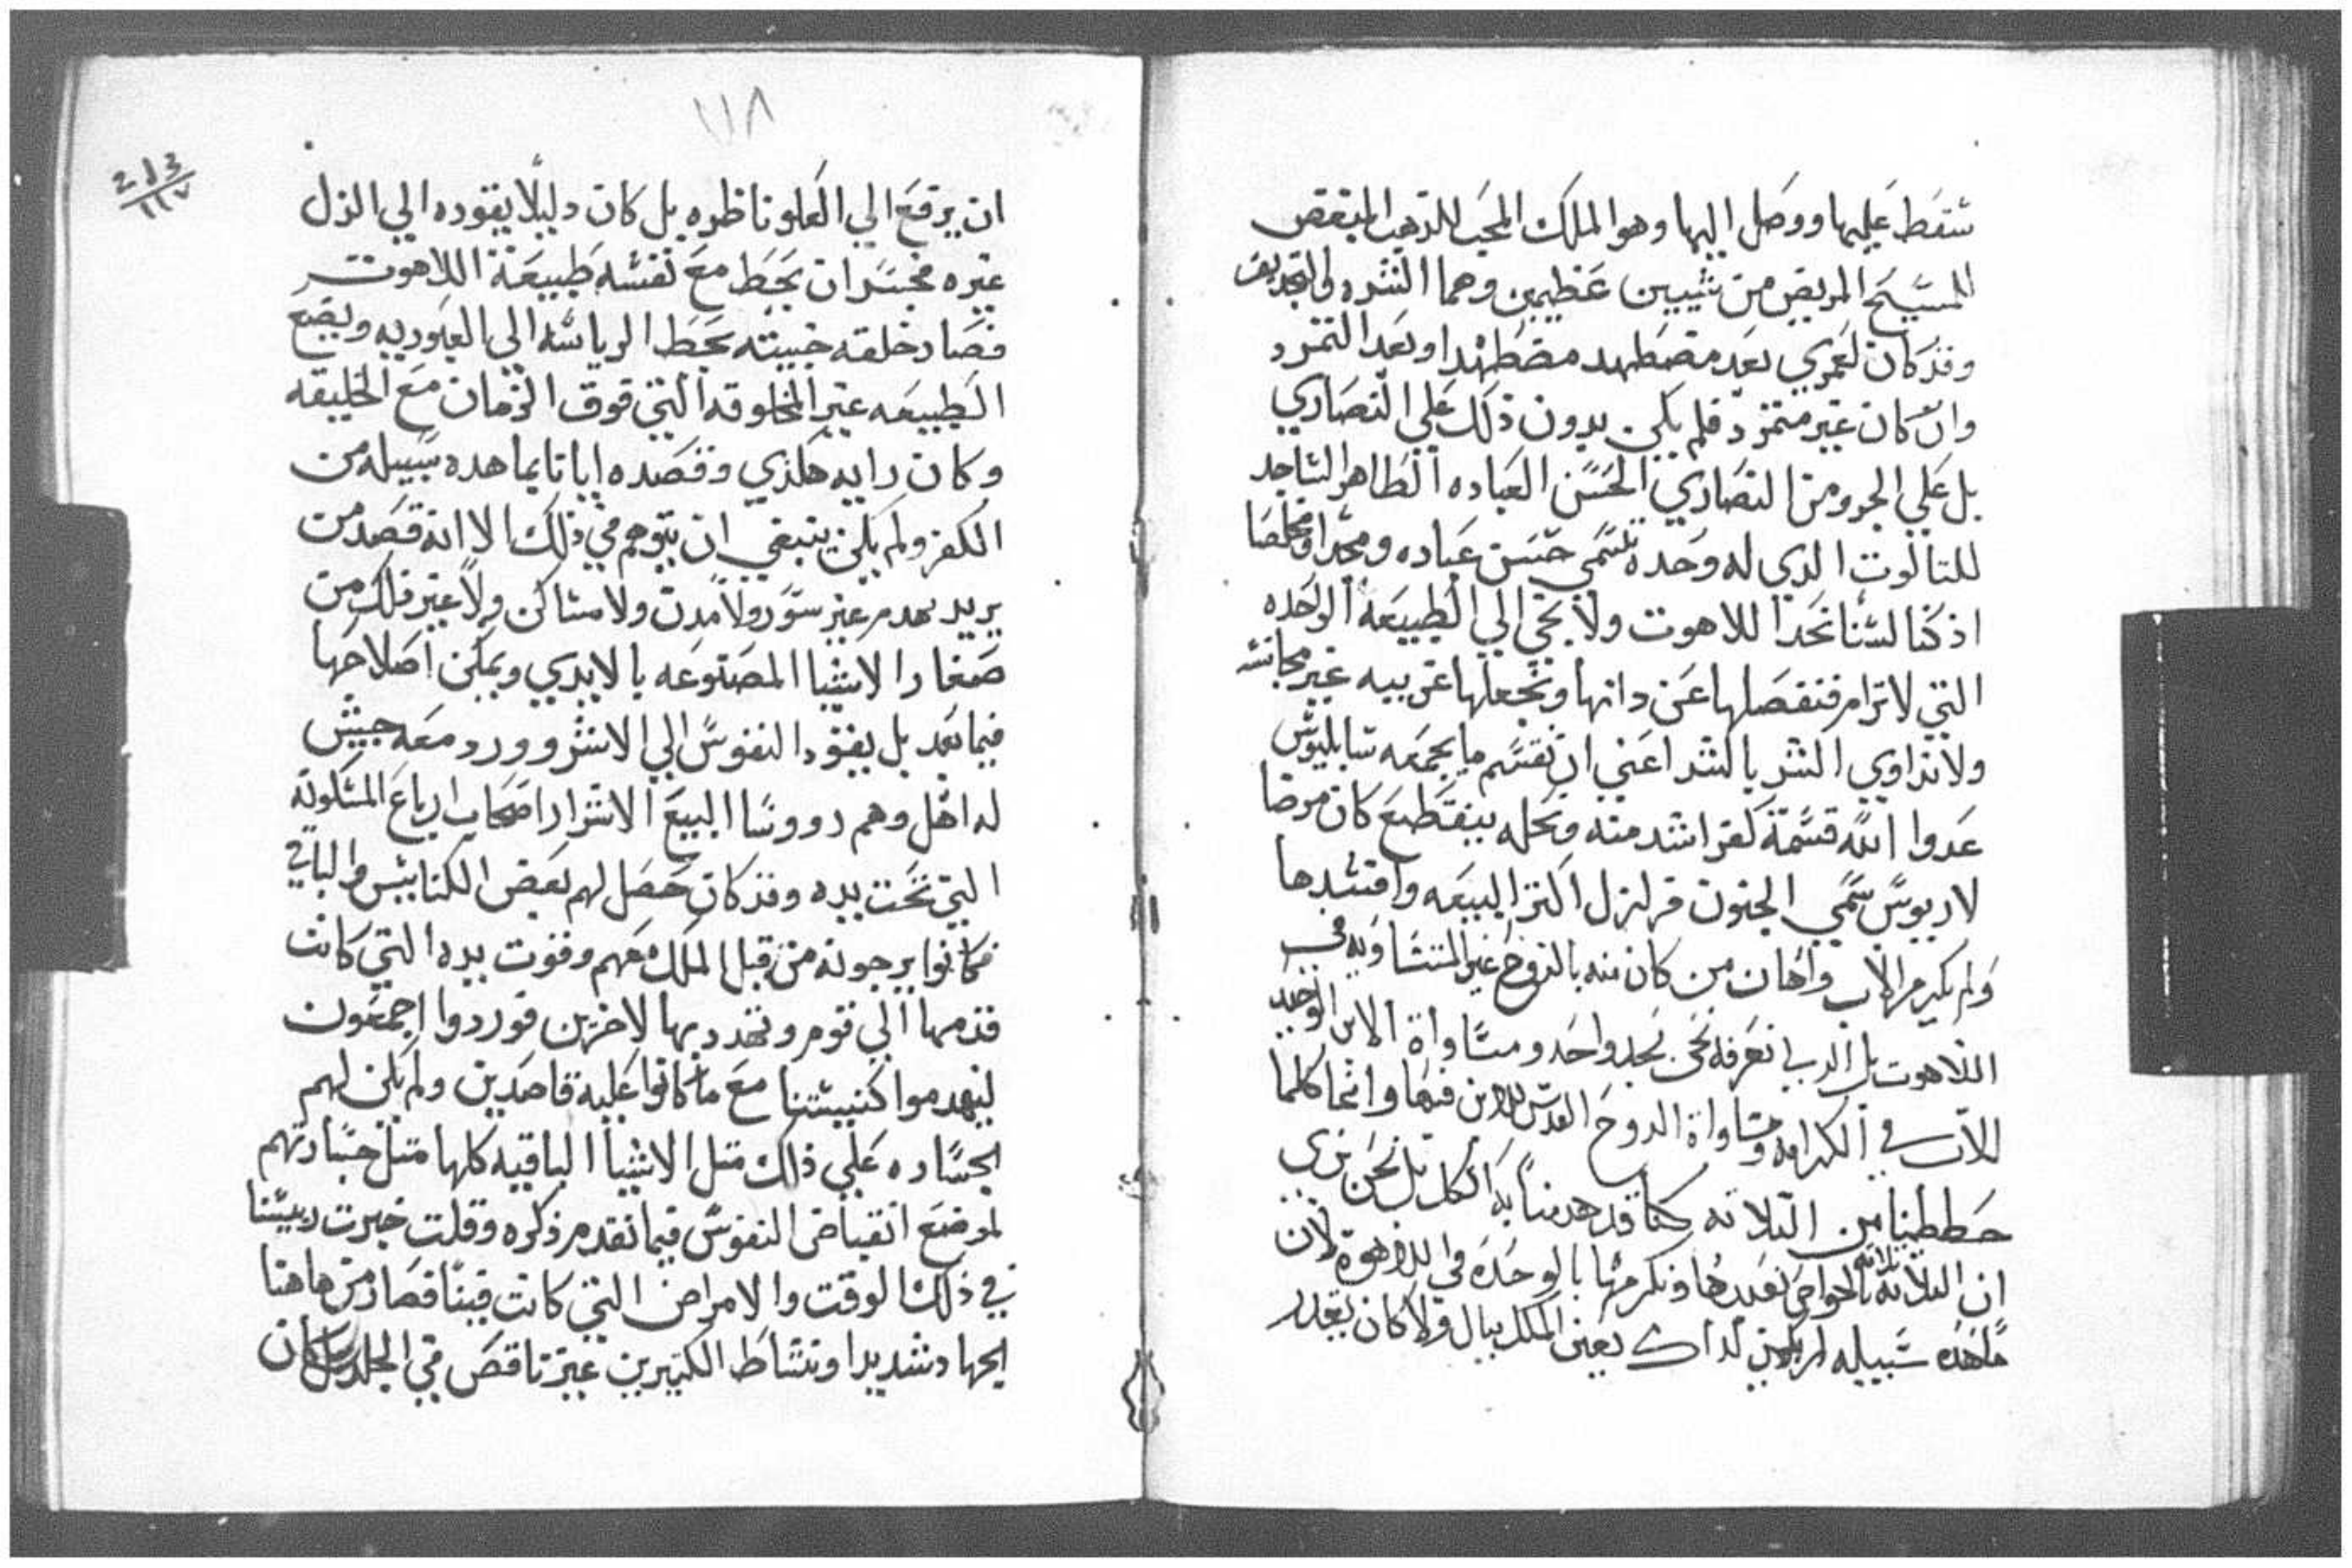 شقط عليها ووصل اليها وهو الملك المحب للذهب المبغض
للمسيح المريض من شيين عظيمين وهما الشره والتجديف
وقد كان لعمري بعد مضطهد مضطهدا وبعد التمرد
وان كان غير متمرد فلم يكن بدون ذلك علي النصاري
بل علي الجرو من النصاري الحسن العباده الطاهر الساجد
للتالوت الدي له وحده تسمي حسن عباده ومجدا ومخلصا
اذ كنا لسنا نحدا للاهوت ولا نجي الي الطبيعه الواحده
التي لا ترام فنفصلها عن داتها ونجعلها غريبيه غير مجانسه
ولا نداوي الشر بالشر اعني ان نقسم ما يجمعه سابليوس
عدوا الله قسمة كفر اشد منه ونحله بتقطيع كان مرضا
لاريوس سمي الجنون فزلزل اكتر البيعه وافسدها
ولم يكرم الاب واهان من كان منه بالدرج غير المتساويه في
اللاهوت بل الدي نعرفه نحن مجد واحد ومساواة الابن الوحيد
للاب في الكرامه ومساواة الروح القدس للابن فيها وانما كلما
حططنا من التلاته كنا قد هدمنا به الكل بل نحن نري
ان التلاته تلاته بالخواص نعبدها ونكرمها بالوحده في اللاهوة لان
ما هده سبيله لم يكن لداك يعني الملك ببال ولا كان يقدر
١١٨
213
١١٧
ان يرفع الي العلو ناظره بل كان دليلا يقوده الي الزل
غيره فجسر ان يحط مع نفسه طبيعة اللاهوت
فصار خلقه خبيته بحط الرياسه الي العبوديه ويضع
الطبيعه غير المخلوقه التي فوق الزمان مع الخليقه
وكان رايه هكذي وقصده ايانا بما هده سبيله من
الكفر ولم يكن ينبغي ان يتوهم في ذلك الا انه قصد من
يريد يهدم غير سور ولا مدن ولا مساكن ولا غير ذلك من
صغار الاشيا المصنوعه بالايدي ويمكن اصلاحها
فيما بعد بل يقود النفوس الي الاشر وورد معه جيش
له اهل وهم رووسا البيع الاشرار اصحاب ارباع المسكونه
التي تحت يده وقد كان حصل لهم بعض الكنايس والباقي
فكانوا يرجونه من قبل الملك معهم وقوت يده التي كانت
قدمها الي قوم وتهدد بها لاخرين فوردوا اجمعون
ليهدموا كنيستنا مع ما كانوا عليه قاصدين ولم يكن لهم
الجساره علي ذلك متل الاشيا الباقيه كلها متل جسارتهم
لموضع انقباض النفوس فيما تقدم ذكره وقلت خبرت رييسنا
في ذلك الوقت والامراض التي كانت فينا فصار من هاهنا
الجهاد شديدا ونشاط الكتيرين غير ناقص في الجلد كان